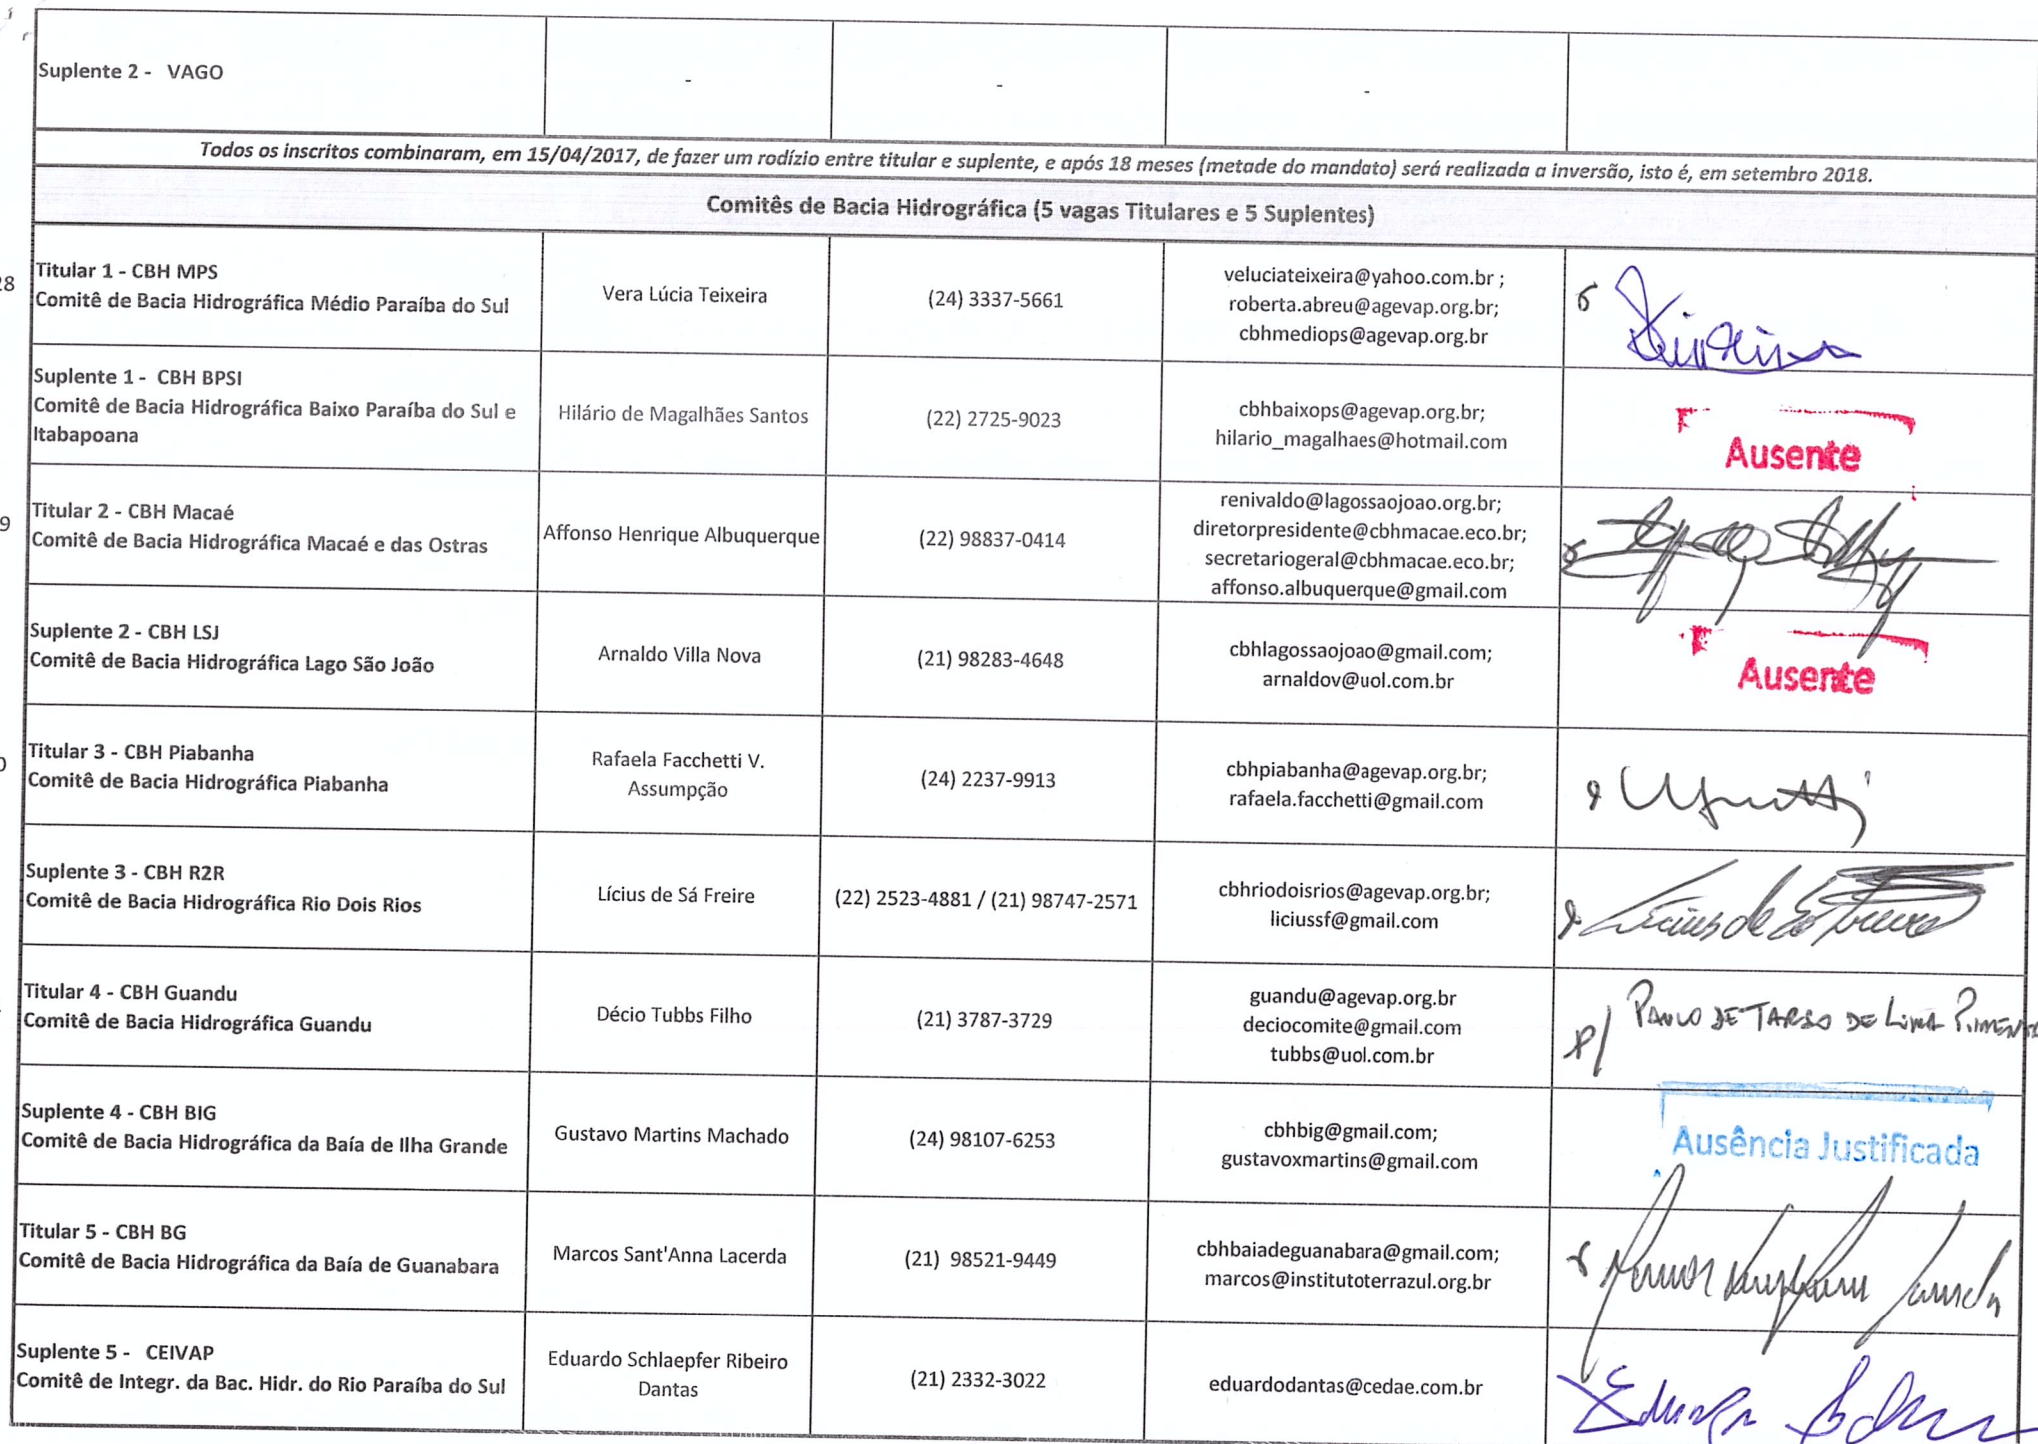 Suplente 2 - VAGO
-
-
-
Todos os inscritos combinaram, em 15/04/2017, de fazer um rodízio entre titular e suplente, e após 18 meses (metade do mandato) será realizada a inversão, isto é, em setembro 2018.
Comitês de Bacia Hidrográfica (5 vagas Titulares e 5 Suplentes)
Titular 1 - CBH MPS
Comitê de Bacia Hidrográfica Médio Paraíba do Sul
Vera Lúcia Teixeira
(24) 3337-5661
veluciateixeira@yahoo.com.br ;
roberta.abreu@agevap.org.br;
cbhmediops@agevap.org.br
Suplente 1 - CBH BPSI
Comitê de Bacia Hidrográfica Baixo Paraíba do Sul e
Itabapoana
Hilário de Magalhães Santos
(22) 2725-9023
cbhbaixops@agevap.org.br;
hilario_magalhaes@hotmail.com
Ausente
Titular 2 - CBH Macaé
Comitê de Bacia Hidrográfica Macaé e das Ostras
Affonso Henrique Albuquerque
(22) 98837-0414
renivaldo@lagossaojoao.org.br;
diretorpresidente@cbhmacae.eco.br;
secretariogeral@cbhmacae.eco.br;
affonso.albuquerque@gmail.com
Suplente 2 - CBH LSJ
Comitê de Bacia Hidrográfica Lago São João
Arnaldo Villa Nova
(21) 98283-4648
cbhlagossaojoao@gmail.com;
arnaldov@uol.com.br
Ausente
Titular 3 - CBH Piabanha
Comitê de Bacia Hidrográfica Piabanha
Rafaela Facchetti V.
Assumpção
(24) 2237-9913
cbhpiabanha@agevap.org.br;
rafaela.facchetti@gmail.com
Suplente 3 - CBH R2R
Comitê de Bacia Hidrográfica Rio Dois Rios
Lícius de Sá Freire
(22) 2523-4881 / (21) 98747-2571
cbhriodoisrios@agevap.org.br;
liciussf@gmail.com
Licius de Sá Freire
Titular 4 - CBH Guandu
Comitê de Bacia Hidrográfica Guandu
Décio Tubbs Filho
(21) 3787-3729
guandu@agevap.org.br
deciocomite@gmail.com
tubbs@uol.com.br
p/ PAULO DE TARSO DE LIMA
Suplente 4 - CBH BIG
Comitê de Bacia Hidrográfica da Baía de Ilha Grande
Gustavo Martins Machado
(24) 98107-6253
cbhbig@gmail.com;
gustavoxmartins@gmail.com
Ausência Justificada
Titular 5 - CBH BG
Comitê de Bacia Hidrográfica da Baía de Guanabara
Marcos Sant'Anna Lacerda
(21) 98521-9449
cbhbaiadeguanabara@gmail.com;
marcos@institutoterrazul.org.br
Suplente 5 - CEIVAP
Comitê de Integr. da Bac. Hidr. do Rio Paraíba do Sul
Eduardo Schlaepfer Ribeiro
Dantas
(21) 2332-3022
eduardodantas@cedae.com.br